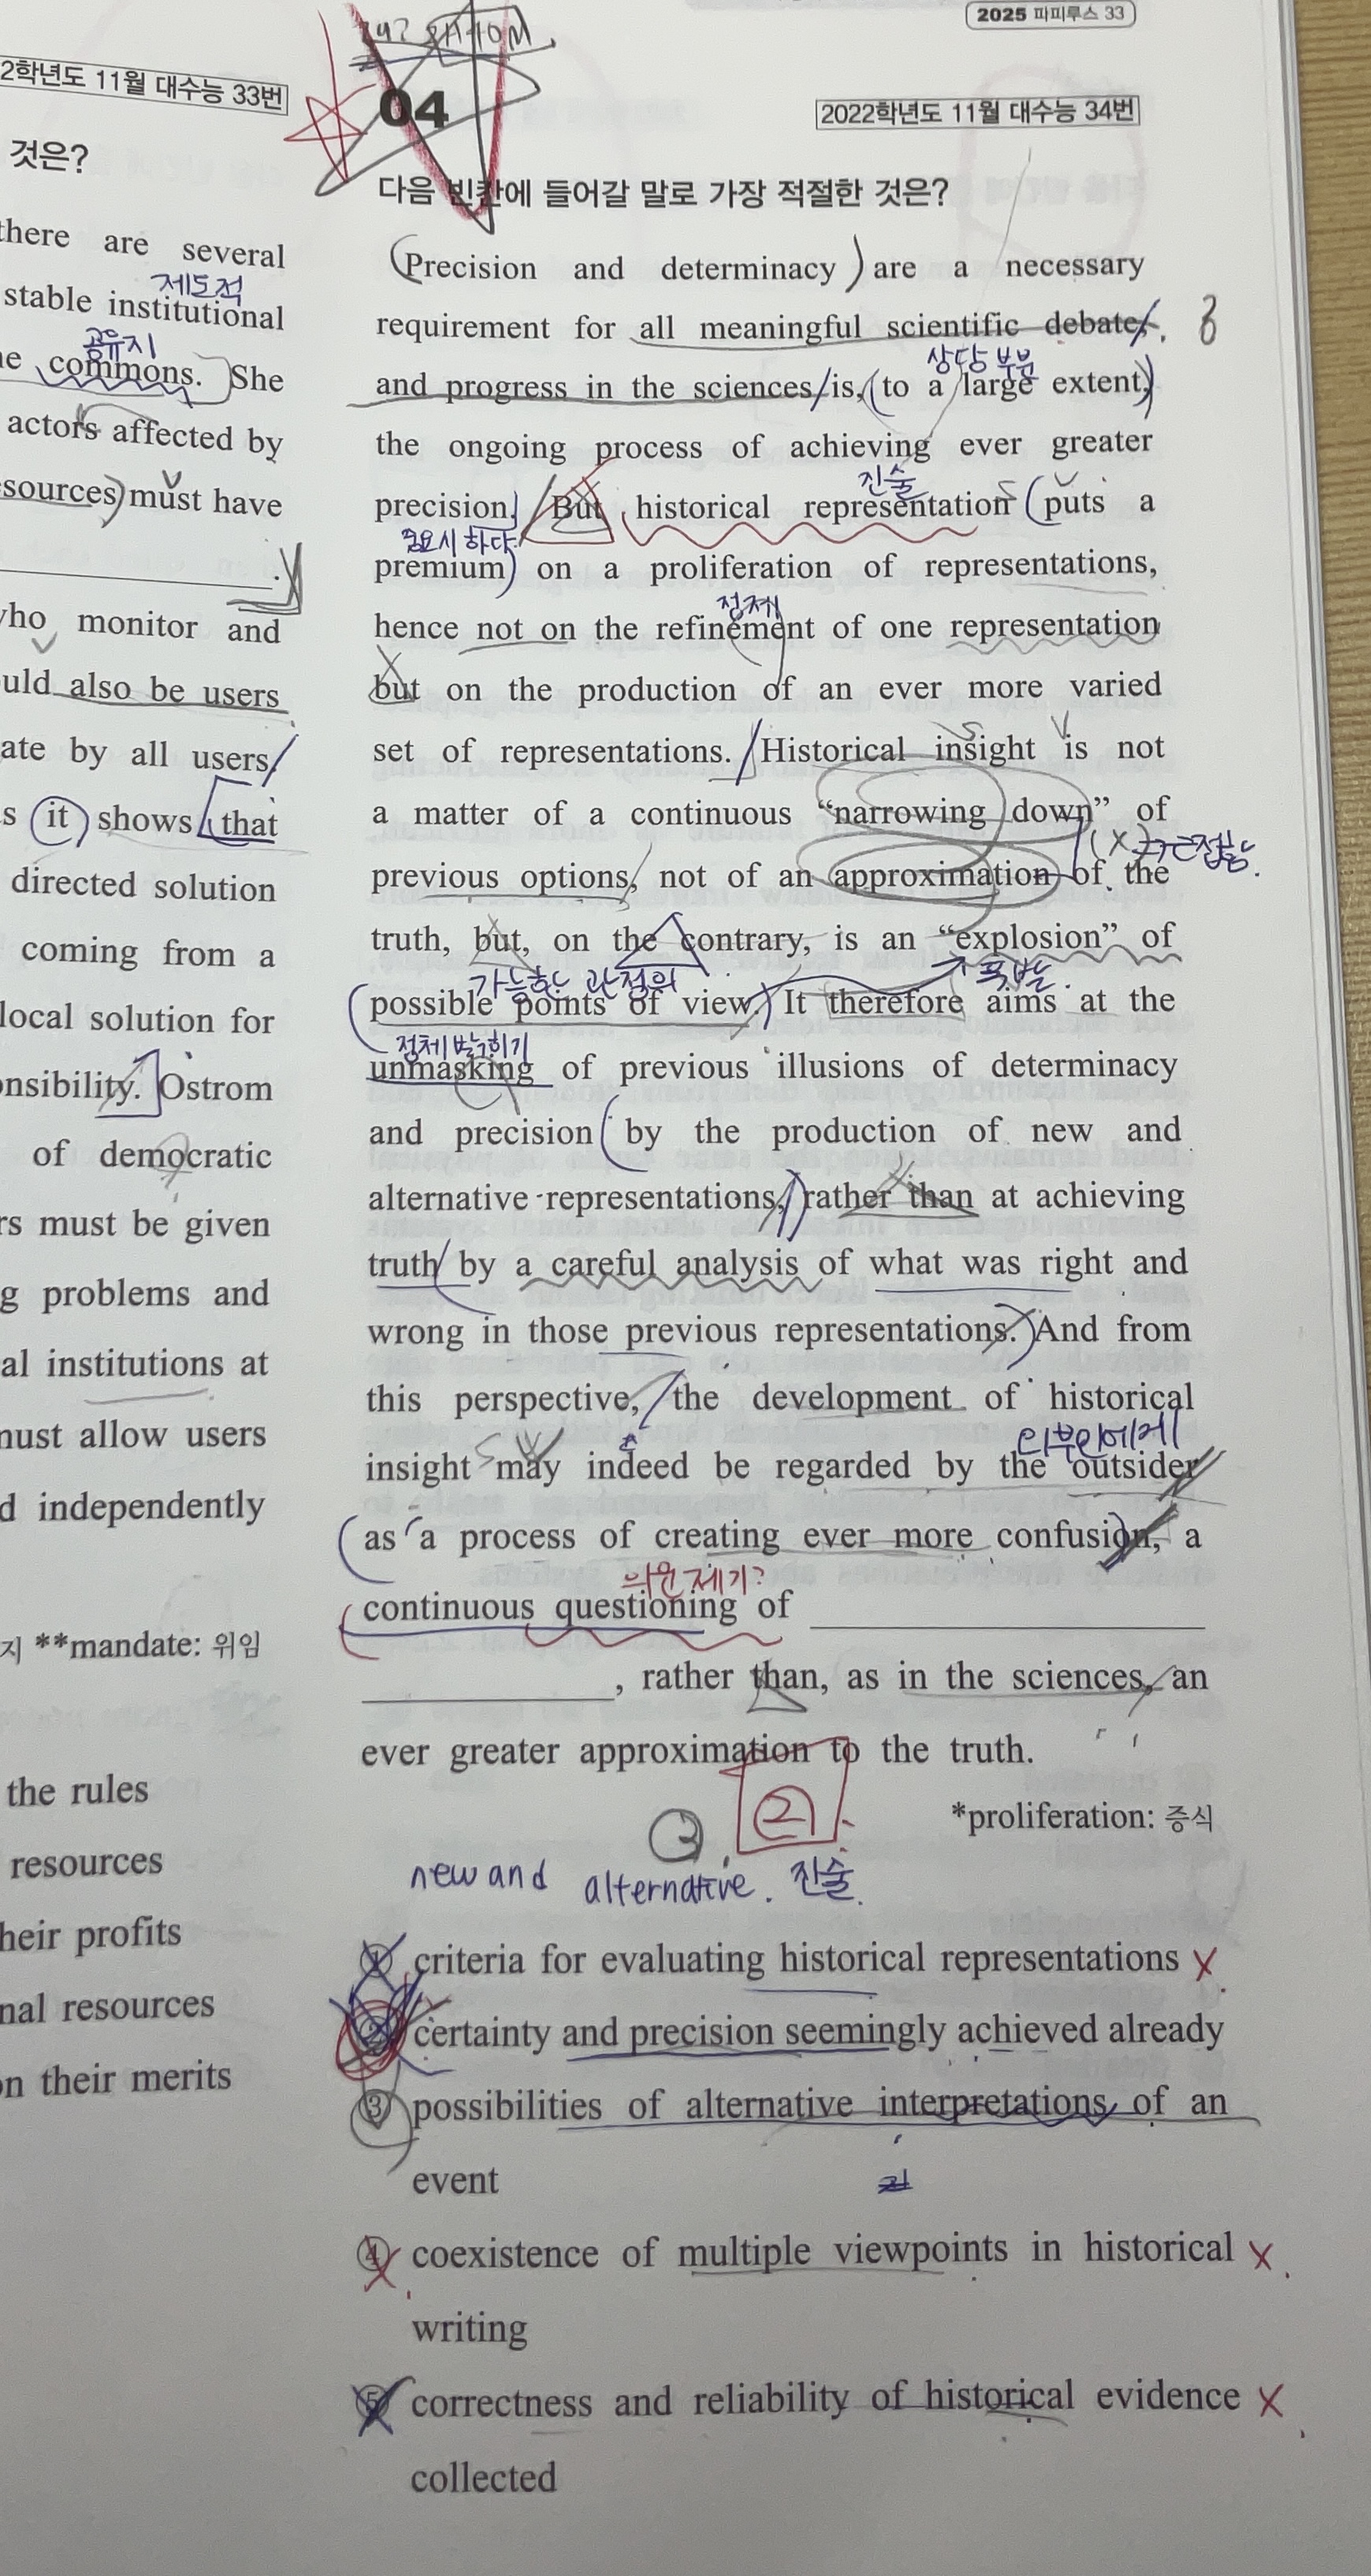 2025 파피루스 33
2학년도 11월 대수능 33번
것은?
there are several
제도적
stable institutional
공유지
commons. She
actors affected by
sources) must have
who monitor and
uld also be users
ate by all users,
s it shows that
directed solution
coming from a
local solution for
onsibility. Ostrom
of democratic
rs must be given
g problems and
al institutions at
must allow users
d independently
지 **mandate: 위임
the rules
resources
their profits
nal resources
on their merits
04
2022학년도 11월 대수능 34번
다음 빈칸에 들어갈 말로 가장 적절한 것은?
Precision and determinacy are a necessary
requirement for all meaningful scientific debate,
상당 부분
and progress in the sciences is, to a large extent,
the ongoing process of achieving ever greater
진술
precision. But historical representation puts a
중요시 하다
premium on a proliferation of representations,
정제
hence not on the refinement of one representation
but on the production of an ever more varied
set of representations. Historical insight is not
a matter of a continuous “narrowing down” of
previous options, not of an approximation of the
truth, but, on the contrary, is an “explosion” of
가능한 관점의 폭발.
possible points of view. It therefore aims at the
정체 밝히기
unmasking of previous illusions of determinacy
and precision by the production of new and
alternative representations, rather than at achieving
truth by a careful analysis of what was right and
wrong in those previous representations. And from
this perspective, the development of historical
외부인에게
insight may indeed be regarded by the outsider
as a process of creating ever more confusion, a
의문 제기?
continuous questioning of
, rather than, as in the sciences, an
ever greater approximation to the truth.
*proliferation: 증식
③ ②
new and alternative. 진술.
① criteria for evaluating historical representations X
② certainty and precision seemingly achieved already
③ possibilities of alternative interpretations of an
event
④ coexistence of multiple viewpoints in historical X
writing
⑤ correctness and reliability of historical evidence X
collected